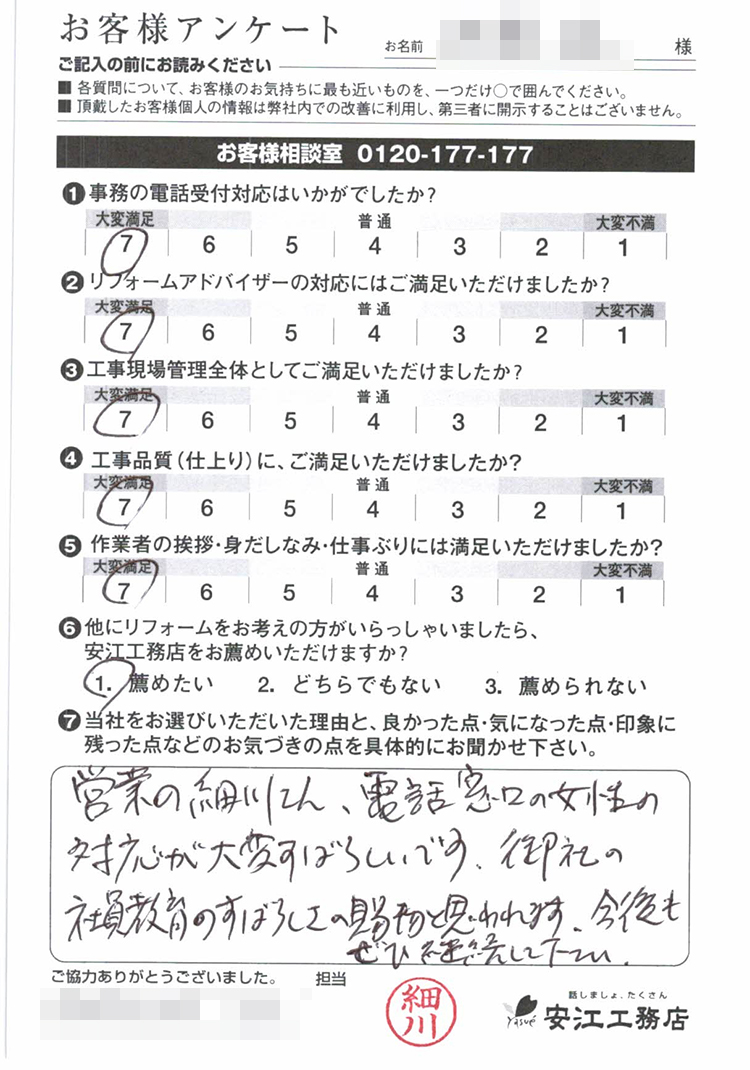 お客様アンケート
お名前 様
ご記入の前にお読みください
■ 各質問について、お客様のお気持ちに最も近いものを、一つだけ○で囲んでください。
■ 頂戴したお客様個人の情報は弊社内での改善に利用し、第三者に開示することはございません。
お客様相談室 0120-177-177
❶事務の電話受付対応はいかがでしたか?
大変満足 普通 大変不満
7 6 5 4 3 2 1
❷リフォームアドバイザーの対応にはご満足いただけましたか?
大変満足 普通 大変不満
7 6 5 4 3 2 1
❸工事現場管理全体としてご満足いただけましたか?
大変満足 普通 大変不満
7 6 5 4 3 2 1
❹ 工事品質(仕上り)に、ご満足いただけましたか?
大変満足 普通 大変不満
7 6 5 4 3 2 1
❺ 作業者の挨拶・身だしなみ・仕事ぶりには満足いただけましたか?
大変満足 普通 大変不満
7 6 5 4 3 2 1
❻他にリフォームをお考えの方がいらっしゃいましたら、
安江工務店をお薦めいただけますか?
1. 薦めたい 2. どちらでもない 3. 薦められない
❼当社をお選びいただいた理由と、良かった点・気になった点・印象に
残った点などのお気づきの点を具体的にお聞かせ下さい。
営業の細川さん、電話窓口の女性の
対応が大変すばらしいです。御社の
社員教育のすばらしさの賜物と思われます。今後も
ぜひ継続して下さい。
ご協力ありがとうございました。 担当
細川
話しましょ、たくさん
Yasue 安江工務店